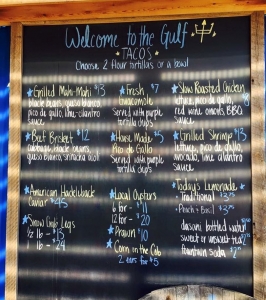 Welcome to the Gulf
TACO'S
Choose 2 flour tortillas or a bowl
Grilled Mahi-Mahi $13
black beans, queso blanco
pico de gallo, lime-cilantro
sauce
Fresh $7
Guacamole
Served with purple
tortilla chips
Slow Roasted Chicken
lettuce, pico de gallo, $8
red wine onions, BBQ
sauce
Beef Brisket $12
cabbage, black beans,
queso blanco, sriracha aioli
House Made $5
Pico de Gallo
Served with purple
tortilla chips
Grilled Shrimp $13
lettuce, pico de gallo,
avocado, lime-cilantro
sauce
American Hackleback
Caviar $95
Snow Crab Legs
1/2 lb - $13
1 lb - $24
Local Oysters
6 for -
12 for - $20
Prawn $10
Corn on the Cob
2 ears for $5
Today's Lemonade
Traditional $3.75
Peach & Basil $3.75
dasani bottled water
sweet or unsweet tea
fountain soda $2